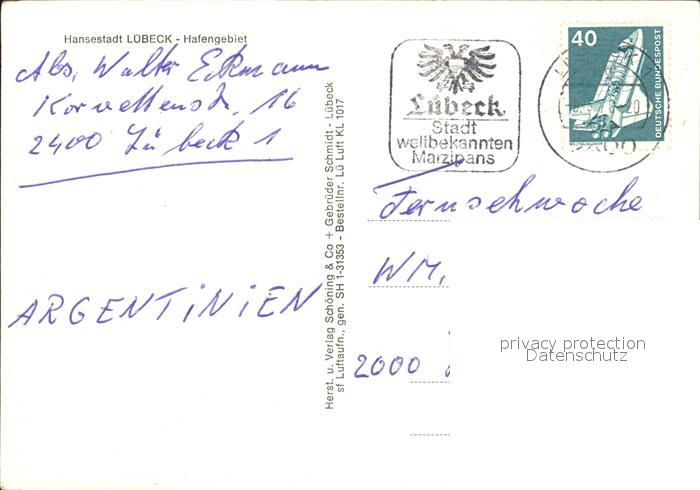 Hansestadt LÜBECK - Hafengebiet
Abs. Walter Eckmann
Korvettenstr. 16
2400 Lübeck 1
ARGENTINIEN
Herst. u. Verlag Schöning & Co + Gebrüder Schmidt - Lübeck
sf Luftaufn., gen. SH 1-31353 - Bestellnr. Lü Luft KL 1017
Lübeck
Stadt
weltbekannten
Marzipans
40
DEUTSCHE BUNDESPOST
Fernsehwoche
WM,
2000
privacy protection
Datenschutz